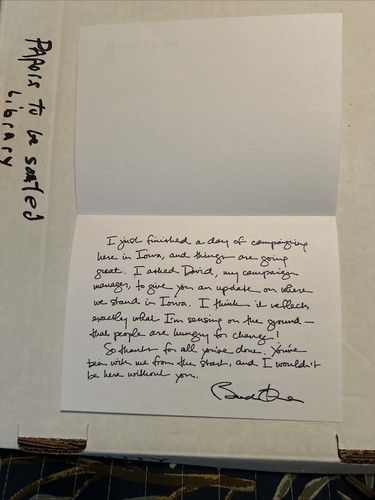 Papers to be sorted
Library
I just finished a day of campaigning
here in Iowa, and things are going
great. I asked David, my campaign
manager, to give you an update on where
we stand in Iowa. I think it reflects
exactly what I'm sensing on the ground —
that people are hungry for change!
So thanks for all you've done. You've
been with me from the start, and I wouldn't
be here without you.